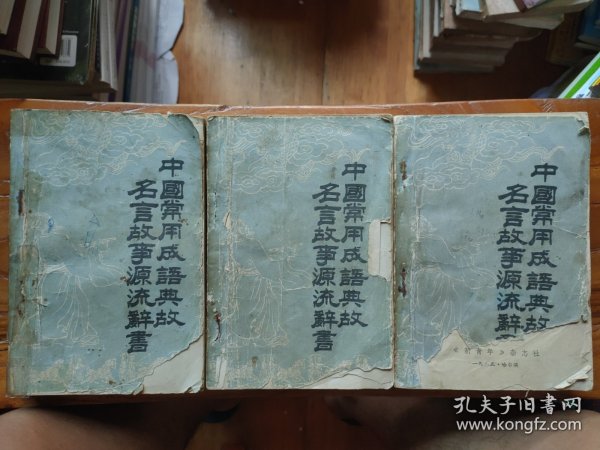 中國常用成語典故
名言故事源流辭書
中國常用成語典故
名言故事源流辭書
中國常用成語典故
名言故事源流辭
《新青年》杂志社
孔夫子旧书网
www.kongfz.com